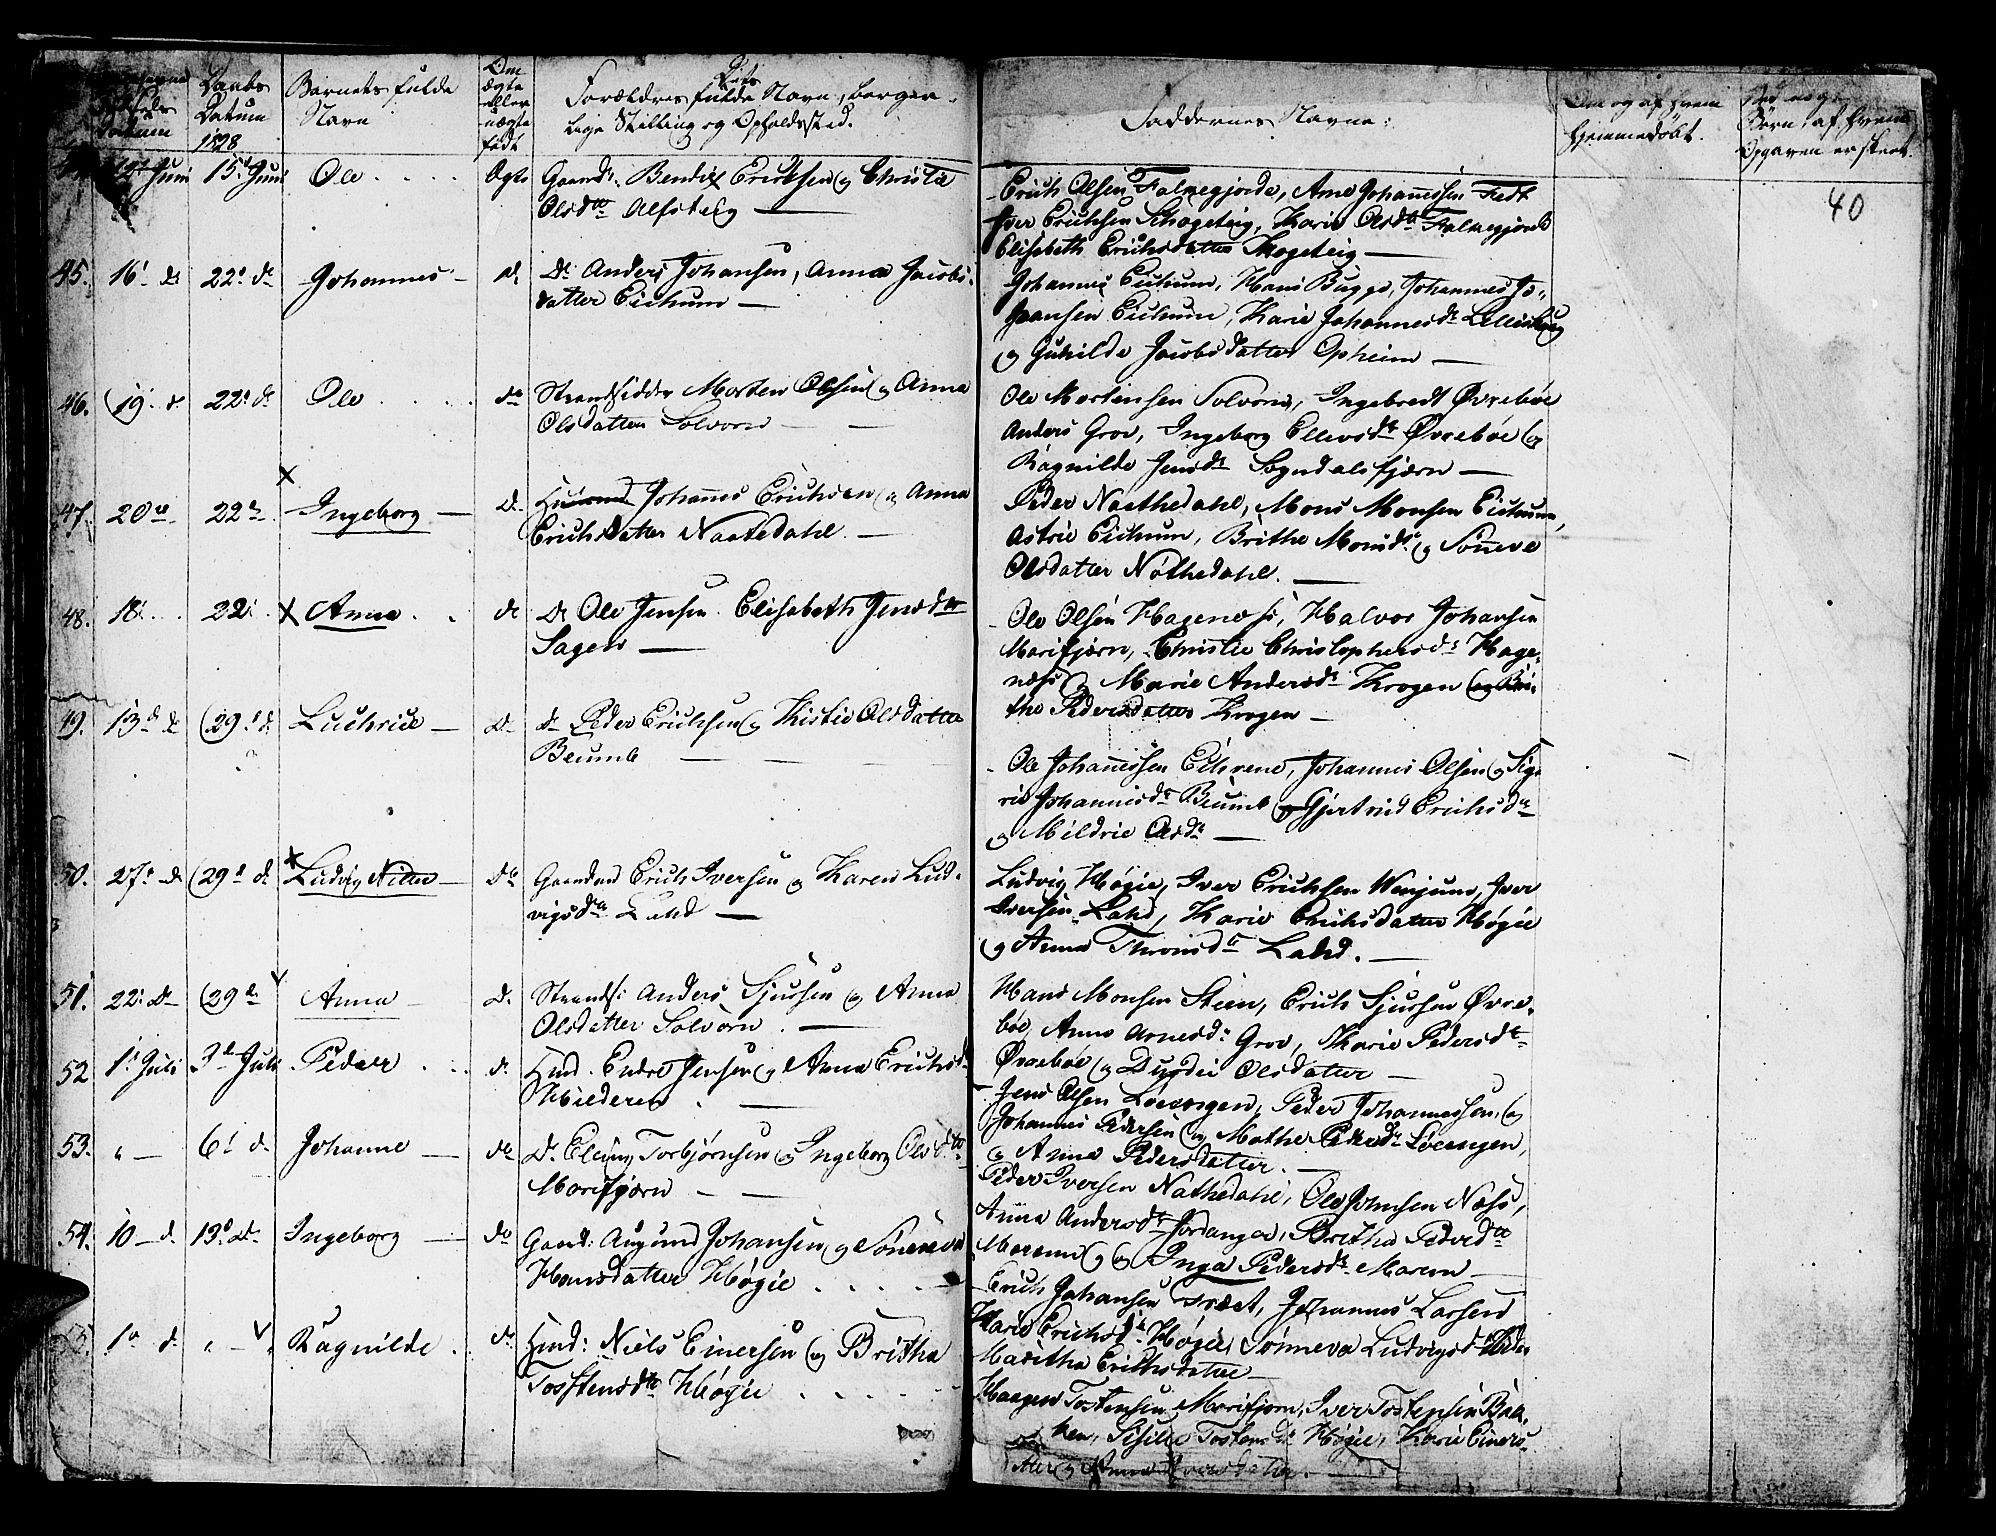 Daabs
Datum
1828
Barnets fulde
Navn
Om
ægte
eller
uægte
født
Forældres fulde Navn, borger-
lige Stilling og Opholdssted.
Faddernes Navne:
Om og af hvem
hjemmedøbt.
Børn, af hvem
Opgaven er skeet.
40
15d Juni Ole Ægte Gaardm. Bendix Erichsen og Christie
Olsdtr Alfsteig
Erich Olsen Falnegjorde, Arne Johannessen Fedt
Iver Erichsen Skogeteig, Karie Olsdtr Falnegjorde
Elisabeth Erichsdatter Skogeteig
45. 16d d. 22d d. Johannes d. D. Anders Johansen, Anna Jacobs-
datter Eichum
Johannes Eichum, Hans Bugge, Johannes Jo-
hansen Eichum, Karie Johannesdr
og Guhilde Jacobsdatter Opheim
46. 19d d. 22d d. Ole do Strandsidder Morten Olsen og Anna
Olsdatter Solvorn
Ole Mortensen Solvorn, Ingebredt Øvrebøe
Anders Grov, Ingeborg Ellevsdr Øvrebøe og
Ragnilde Jensdr Sogndalsfjæren
47. 20d 22d Ingeborg d. Johannes Erichsen og Anna
Erichsdatter Naatedahl
Peder Naathedahl, Mons Monsen Eichum,
Astrie Eichum, Brithe Monsdr og Sønneve
Olsdatter Nathedahl.
48. 18d 22d x Anna d. D. Ole Jensen Elisabeth Jensdtr
Sagen
Ole Olsen Hagenæss, Halvor Johansen
Marifjæren, Christie Christophersdr Hage-
næss, Marie Andersdr Krogen og Bri-
the Pedersdatter Krogen
49. 13d d. 29d d. Luchrice D. D. Peder Erichsen og Kistie Olsdatter
Beumb
Ole Johannessen Eikrene, Johannes Olsen og Sig-
rie Johannesdr Beumb og Gjertrud Erichsdr
og Mildrie Olsdr
50. 27d d. 29d d. Ludvig Nitter Do Gaardmd Erich Iversen og Karen Lud-
vigsdtr Lahd
Ludvig Høgie, Iver Erichsen Venjum, Iver
Iversen Lahd, Karie Erichsdatter Høgie
og Anna Thronsdtr Lahd.
51. 22d D. 29d Anna d. Strands: Anders Sjursen og Anna
Olsdatter Solvorn
Hans Monsen Steen, Erich Sjursen Øvre-
bøe, Anne Arnesdr Grov, Karie Pedersdr
Øvrebøe og Durdei Olsdatter
52 1d Juli 3d Juli Peder d. Hmd. Endre Jensen og Anna Erichsd
Jens Olsen Løeengen, Peder Johannessen og
Johannes Pedersen og Mathe Pedersdr Løeengen,
og Anna Pedersdatter.
53. 6d d. Johanne do D. Elling Torbjørnsen og Ingeborg Olsdtr
Marifjæren
Peder Iversen Nathedahl, Ole Johnsen Næss,
Anna Andersdr Jordanger, Brithe Pedersdtr
Marem og Inga Pedersdr Marem
54. 10 d. 13d d. Ingeborg do Gaard: Augund Johansen og Sønneva
Hansdatter Høgie
Erich Johansen Træet, Johannes Larsen
Karie Erichsdr Høgie, Sønneva Ludvigsd
Maritha Erichsdatter
55. 1d d. Ragnilde do Hmd: Niels Einersen og Britha
Tostensdtr Høgie
Haagen Tostensen Marifjæren, Iver Tostensen Bak-
ken, Sisilie Tostensdr Høgie, Karie Einers-
datter og Anna Iversdatter.